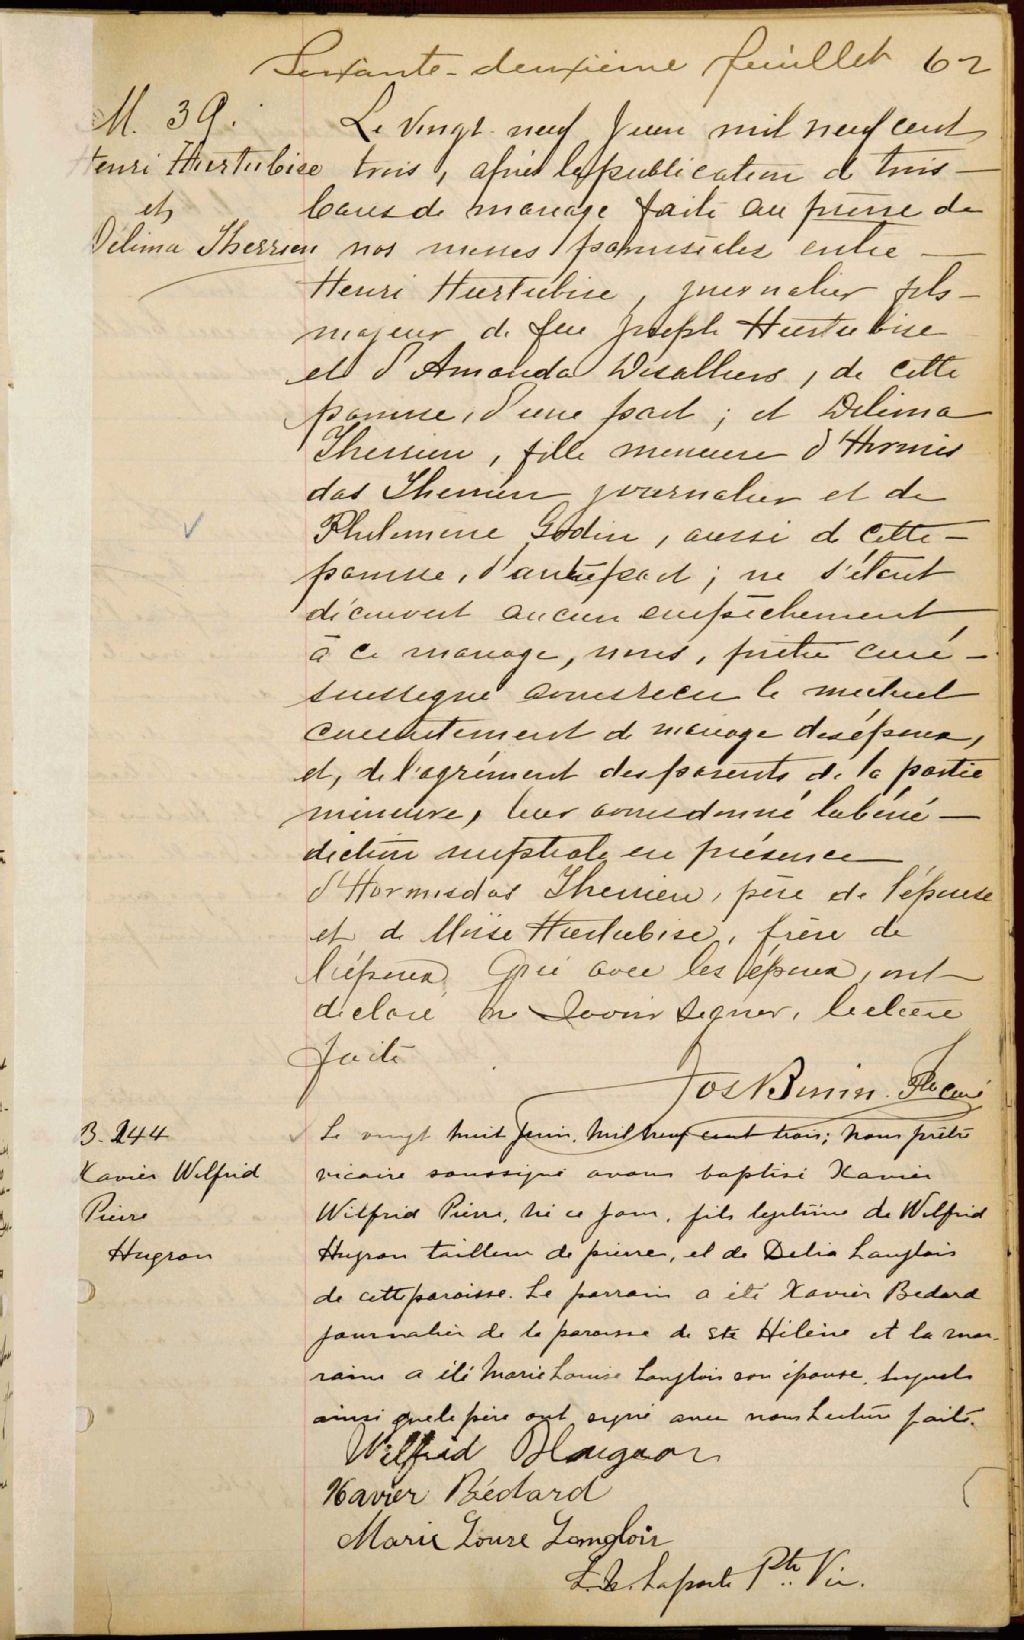 Soixante-deuxième feuillet 62
M. 39.
Henri Hurtubise
et
Délima Therrien
Le vingt neuf Juin mil neuf cent
trois, après la publication de trois
bans de mariage faite au prône de
nos messes paroissiales entre
Henri Hurtubise, journalier fils
majeur de feu Joseph Hurtubise
et d'Amanda Desalliers, de cette
paroisse, d'une part ; et Délima
Therrien, fille mineure d'Hormis
das Therrien journalier et de
Philomène Godin, aussi de cette
paroisse, d'autre part ; ne s'étant
découvert aucun empêchement
à ce mariage, nous, prêtre curé
soussigné avons reçu le mutuel
consentement de mariage des époux,
et, de l'agrément des parents de la partie
mineure, leur avons donné la béné-
diction nuptiale en présence
d'Hormisdas Therrien, père de l'épouse
et de Moïse Hurtubise, frère de
l'époux Qui avec les époux, ont
déclaré ne savoir signer, lecture
faite
Jos Bonin. Ptre curé
B. 244
Xavier Wilfrid
Pierre
Hugron
Le vingt huit Juin, mil neuf cent trois; nous prêtre
vicaire soussigné avons baptisé Xavier
Wilfrid Pierre, né ce jour, fils légitime de Wilfrid
Hugron tailleur de pierre, et de Delia Langlois
de cette paroisse. Le parrain a été Xavier Bedard
journalier de la paroisse de Ste Hélène et la mar-
raine a été Marie Louise Langlois son épouse, lesquels
ainsi que le père ont signé avec nous Lecture faite.
Wilfrid
Xavier Bédard
Marie Louise Langlois
Laporte Ptre Vic.